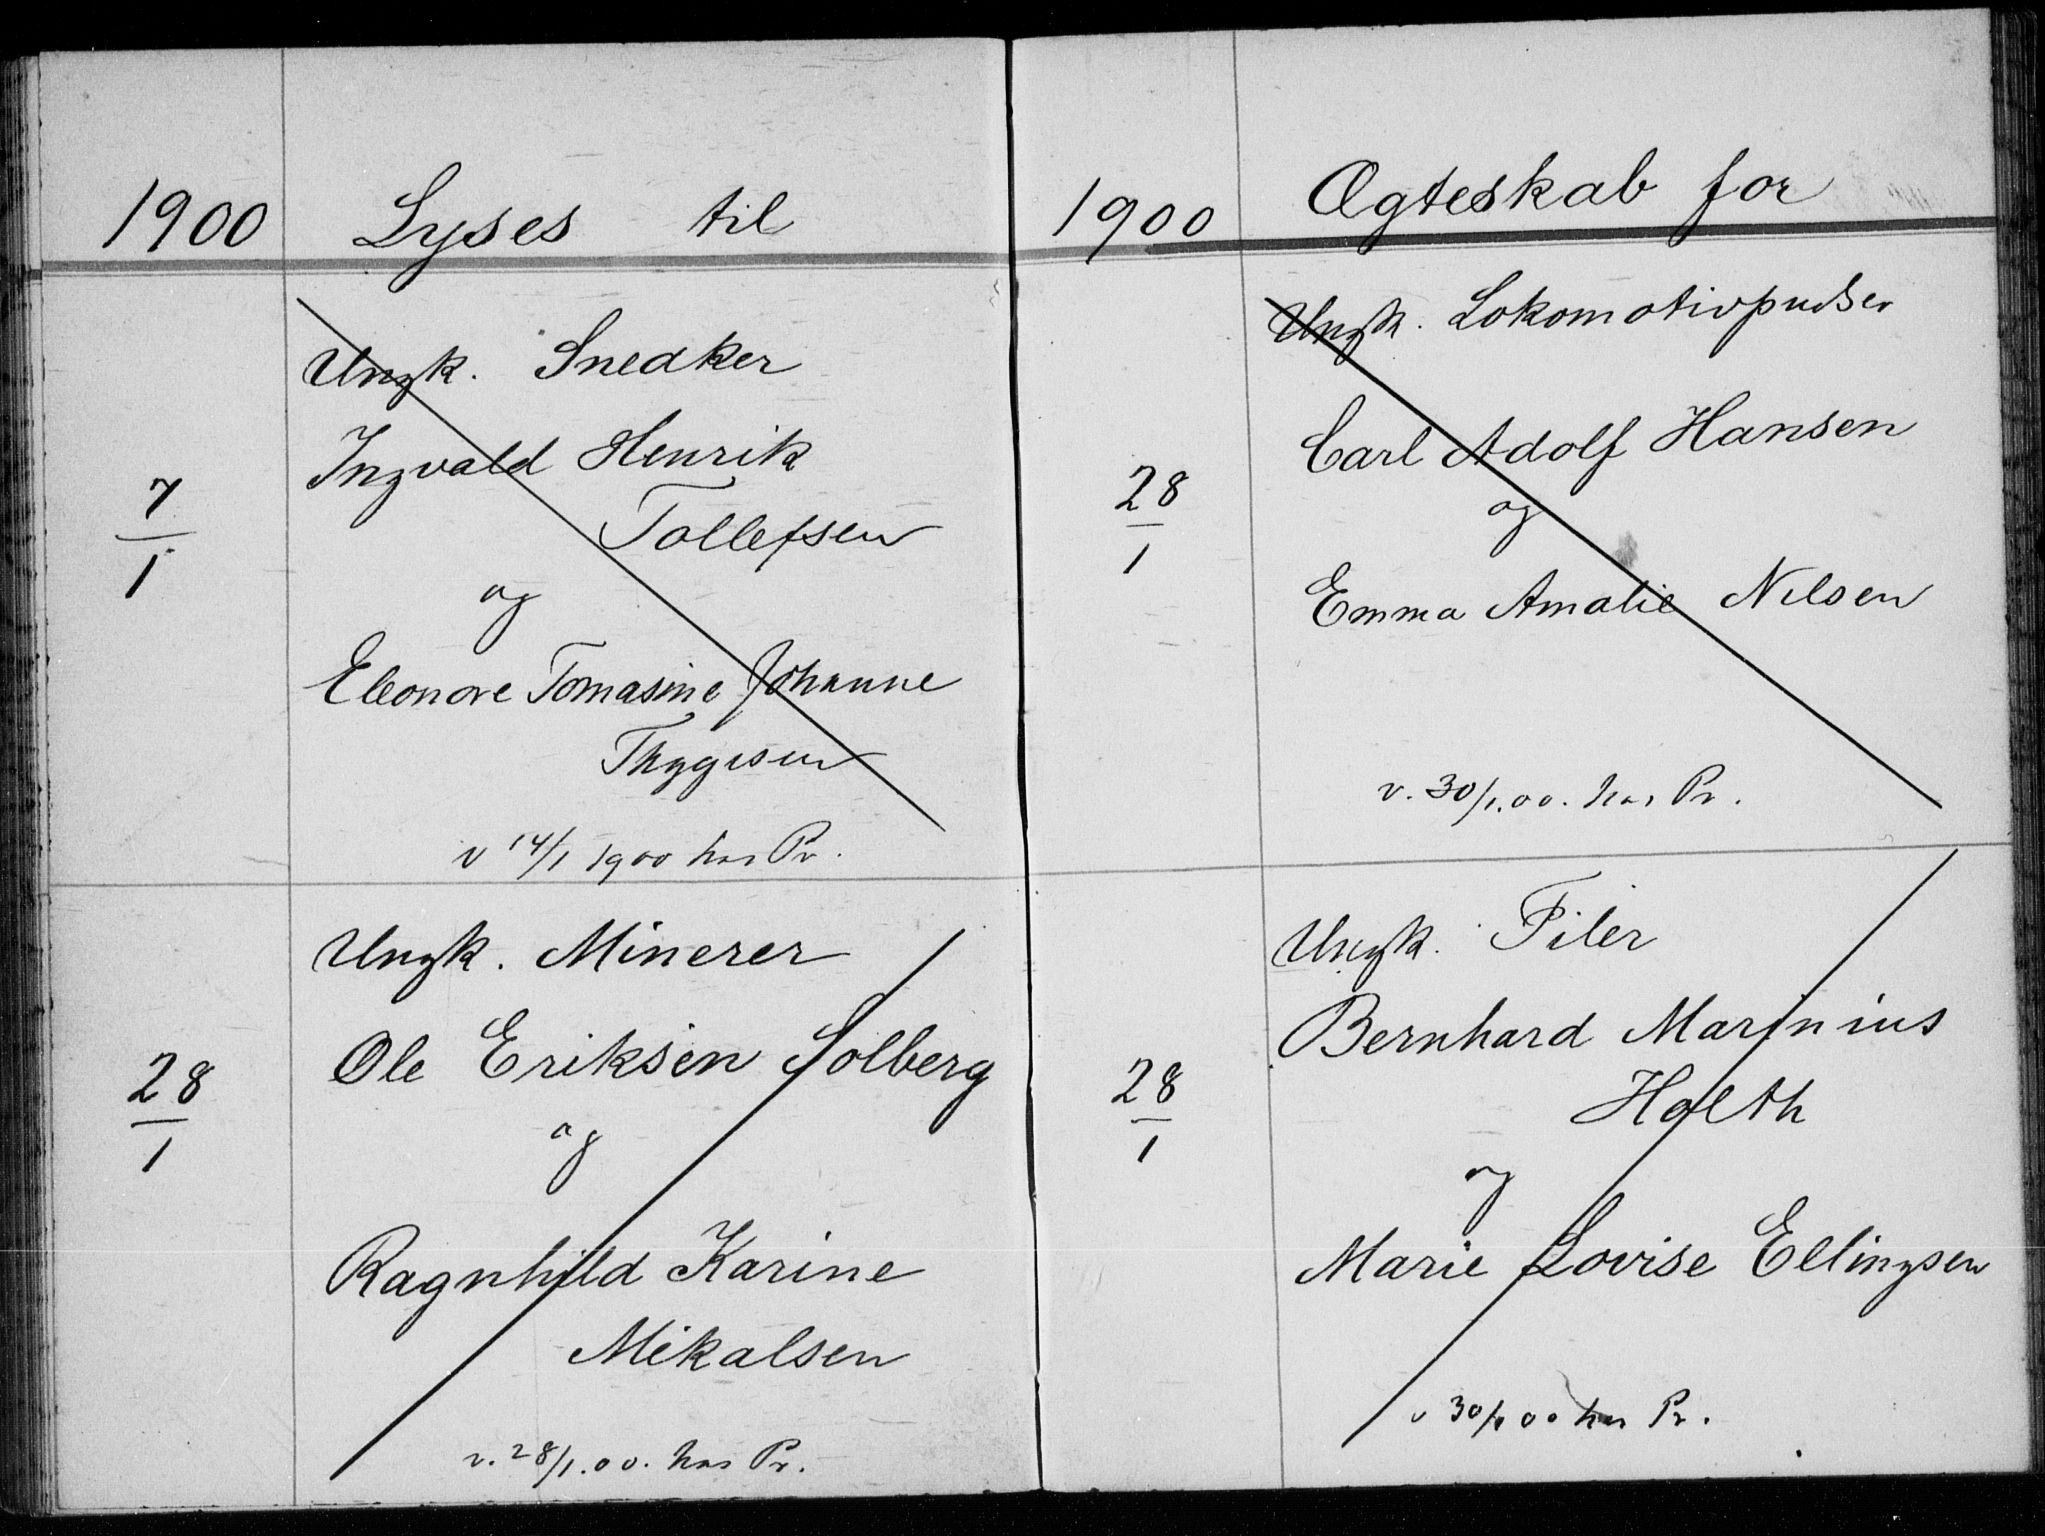 1900 Lyses til
7/1
Ungk. Snedker
Ingvald Henrik
Tollefsen
og
Eleonore Tomasine Johanne
Thygesen
v 14/1 1900 hos Pr.
28/1
Ungk. Minerer
Ole Eriksen Solberg
og
Ragnhild Karine
Mikalsen
v. 28/1.00. hos Pr.
1900 Ægteskab for
28/1
Ungk. Lokomotivpudser
Carl Adolf Hansen
og
Emma Amalie Nilsen
v. 30/1.00. hos Pr.
28/1
Ungk. Filer
Bernhard Marinius
Holth
og
Marie Lovise Ellingsen
v 30/1 00 hos Pr.